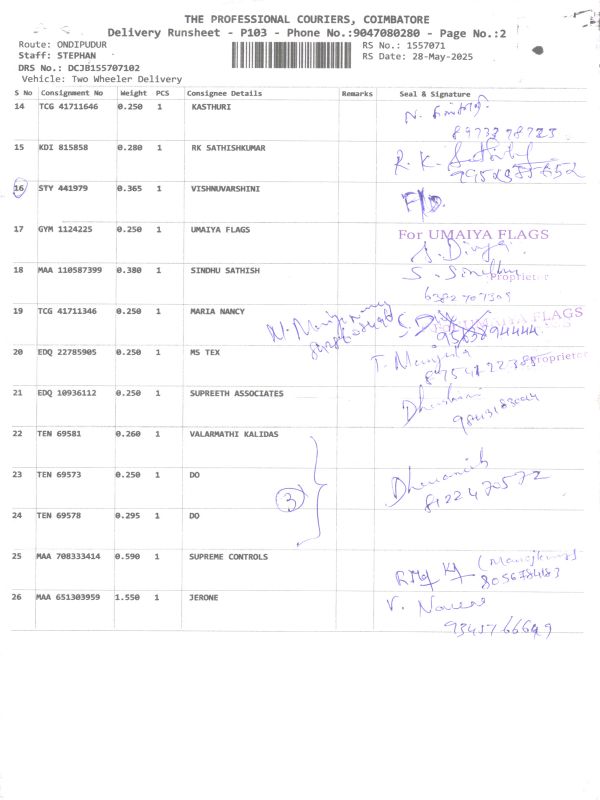 THE PROFESSIONAL COURIERS, COIMBATORE
Delivery Runsheet - P103 - Phone No.:9047080280 - Page No.:2
Route: ONDIPUDUR RS No.: 1557071
Staff: STEPHAN RS Date: 28-May-2025
DRS No.: DCJB155707102
Vehicle: Two Wheeler Delivery
S No Consignment No Weight PCS Consignee Details Remarks Seal & Signature
14 TCG 41711646 0.250 1 KASTHURI N.
15 KDI 815858 0.280 1 RK SATHISHKUMAR R. K.
16 STY 441979 0.365 1 VISHNUVARSHINI F/D.
17 GYM 1124225 0.250 1 UMAIYA FLAGS For UMAIYA FLAGS
Proprietor
18 MAA 110587399 0.380 1 SINDHU SATHISH S. Sindhu
19 TCG 41711346 0.250 1 MARIA NANCY
UMAIYA FLAGS
9363894444
20 EDQ 22785905 0.250 1 MS TEX T.
Proprietor
21 EDQ 10936112 0.250 1 SUPREETH ASSOCIATES
22 TEN 69581 0.260 1 VALARMATHI KALIDAS
23 TEN 69573 0.250 1 DO
3
8122470572
24 TEN 69578 0.295 1 DO
25 MAA 708333414 0.590 1 SUPREME CONTROLS
8056784183
26 MAA 651303959 1.550 1 JERONE V.